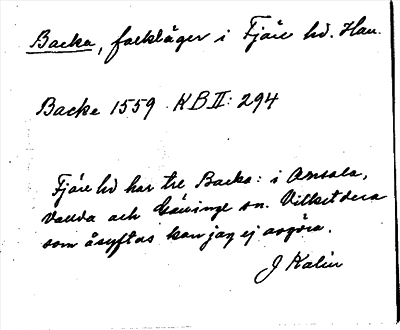 Backa, folkläger i Fjäre hd. Hall.
Backe 1559 KB II: 294
Fjäre hd har tre Backa: i Onsala,
Vallda och Gällinge sn. Vilketdera
som åsyftas kan jag ej avgöra.
J Kalén